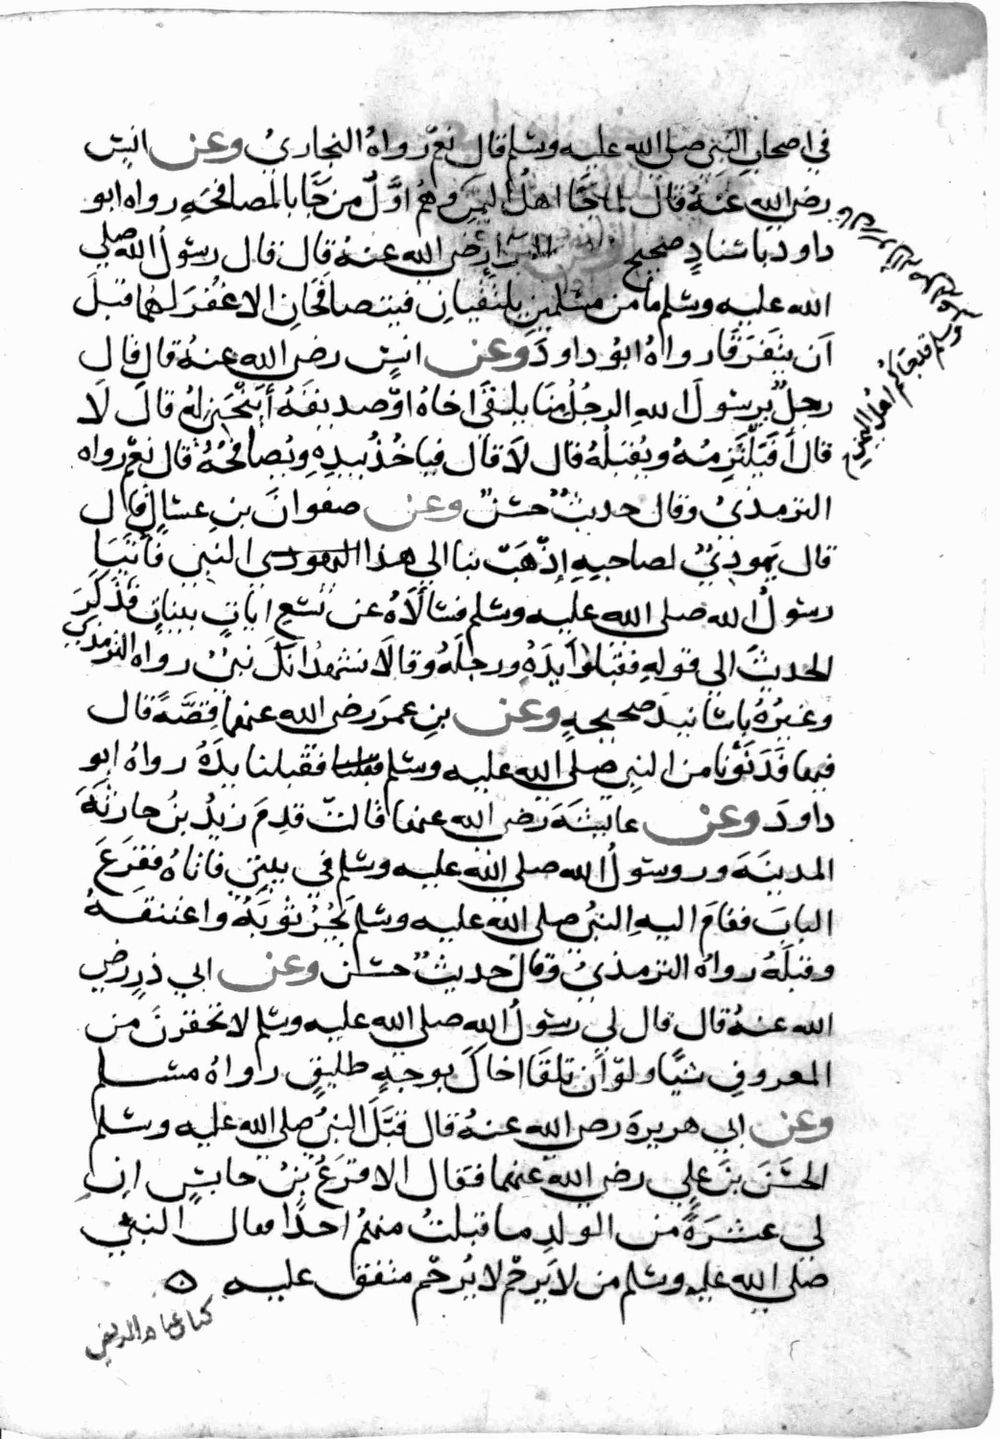 في اصحاب النبي صلى الله عليه وسلم قال نعم رواه البخاري وعن انس
رضي الله عنه قال لما جا اهل اليمن وهم اول من جا بالمصافحه رواه ابو
داود باسناد صحيح رضي الله عنه قال قال رسول الله صلى
الله عليه وسلم ما من مسلمين يلتقيان فيتصافحان الا غفر لهما قبل
ان يتفرقا رواه ابو داود وعن انس رضي الله عنه قال قال
رجل يرسول الله الرجل منا يلقى اخاه او صديقه أينحني له قال لا
قال أفيلتزمه ويقبله قال لا قال فياخذ بيده ويصافحه قال نعم رواه
الترمذي وقال حديث حسن وعن صفوان بن عسال قال
قال يهودي لصاحبه إذهب بنا الى هذا اليهودى النبي فأتيا
رسول الله صلى الله عليه وسلم فسألاه عن تسع ايات بينات فذكر
الحديث الى قوله فقبلوا يده ورجله وقالا نشهد انك نبي رواه الترمذي
وغيره باسانيد صحيحه وعن بن عمر رضي الله عنهما قصة قال
فيها فدنونا من النبي صلى الله عليه وسلم فقبلنا فقبلنا يده رواه ابو
داود وعن عايشة رضي الله عنها قالت قدم زيد بن حارثة
المدينة ورسول الله صلى الله عليه وسلم في بيتي فاتاه فقرع
الباب فقام اليه النبي صلى الله عليه وسلم يجر ثوبه واعتنقه
وقبله رواه الترمذي وقال حديث حسن وعن ابي ذر رضي
الله عنه قال قال لي رسول الله صلى الله عليه وسلم لا تحقرن من
المعروف شيا ولو أن تلقا اخاك بوجه طليق رواه مسلم
وعن ابي هريرة رضي الله عنه قال قبل النبي صلى الله عليه وسلم
الحسن بن علي رضي الله عنهما فقال الاقرع بن حابس ان
لي عشرة من الولد ما قبلت منهم احدا فقال النبي
صلى الله عليه وسلم من لا يرحم لا يرحم متفق عليه
وسلم قد جاكم اهل اليمن
كتاب عياده المريض